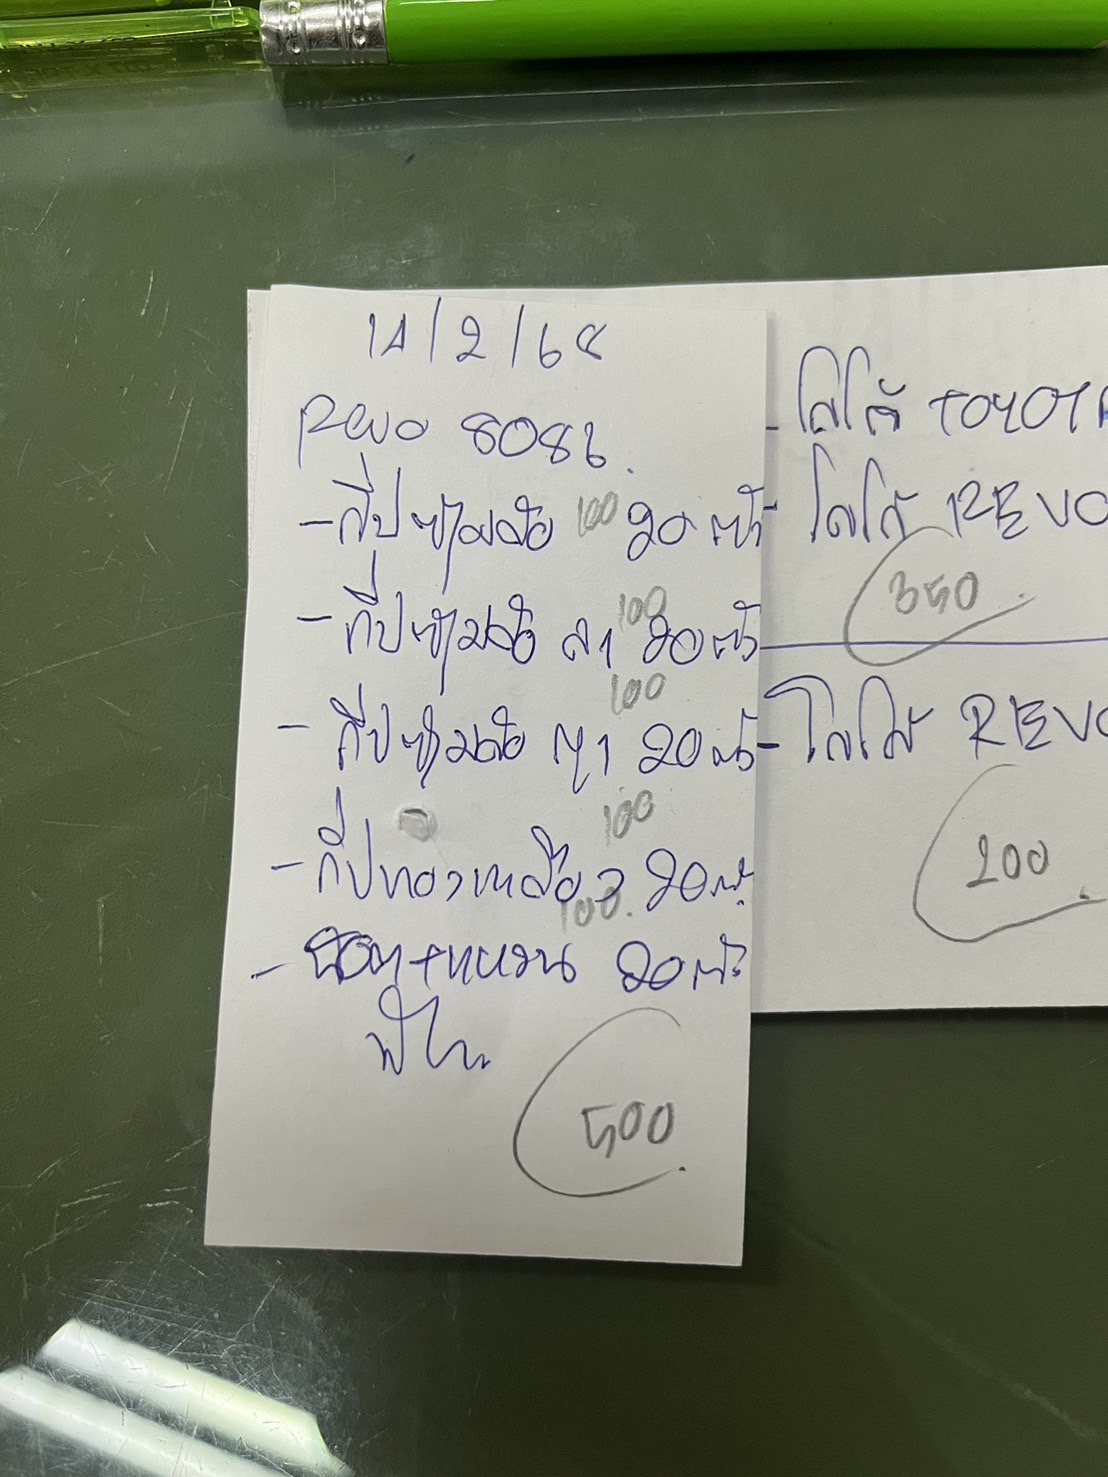 14/2/68
Revo 8086.
- กิ๊ปซุ้มล้อ 100 20 ตัว
- กิ๊ปซุ้มล้อ ลา 100 20 ตัว
- กิ๊ปซุ้มล้อ 100 20 ตัว
- กิ๊ปทองเหลือง 100 20 ตัว
- น๊อต+แหวน 100. 20 ตัว
500
- โลโก้ TOYOTA
- โลโก้ REVO
350
- โลโก้ REVO
200